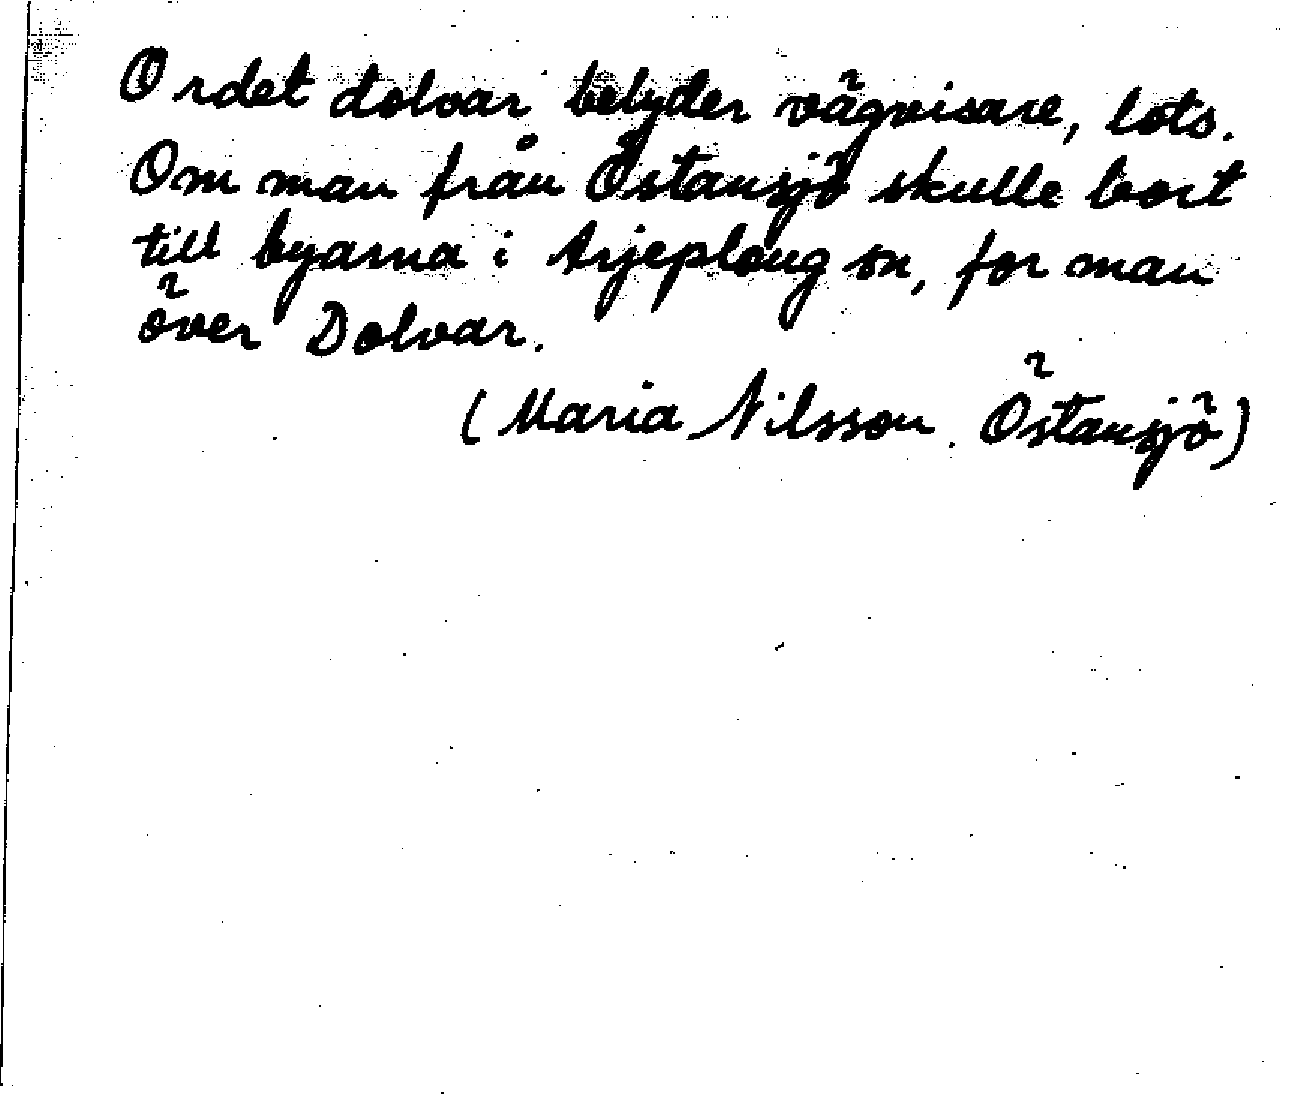 Ordet dolvar betyder vägvisare, lots.
Om man från Östansjö skulle bort
till byarna i Arjeploug sn, for man
över Dolvar.
(Maria Nilsson. Östansjö)